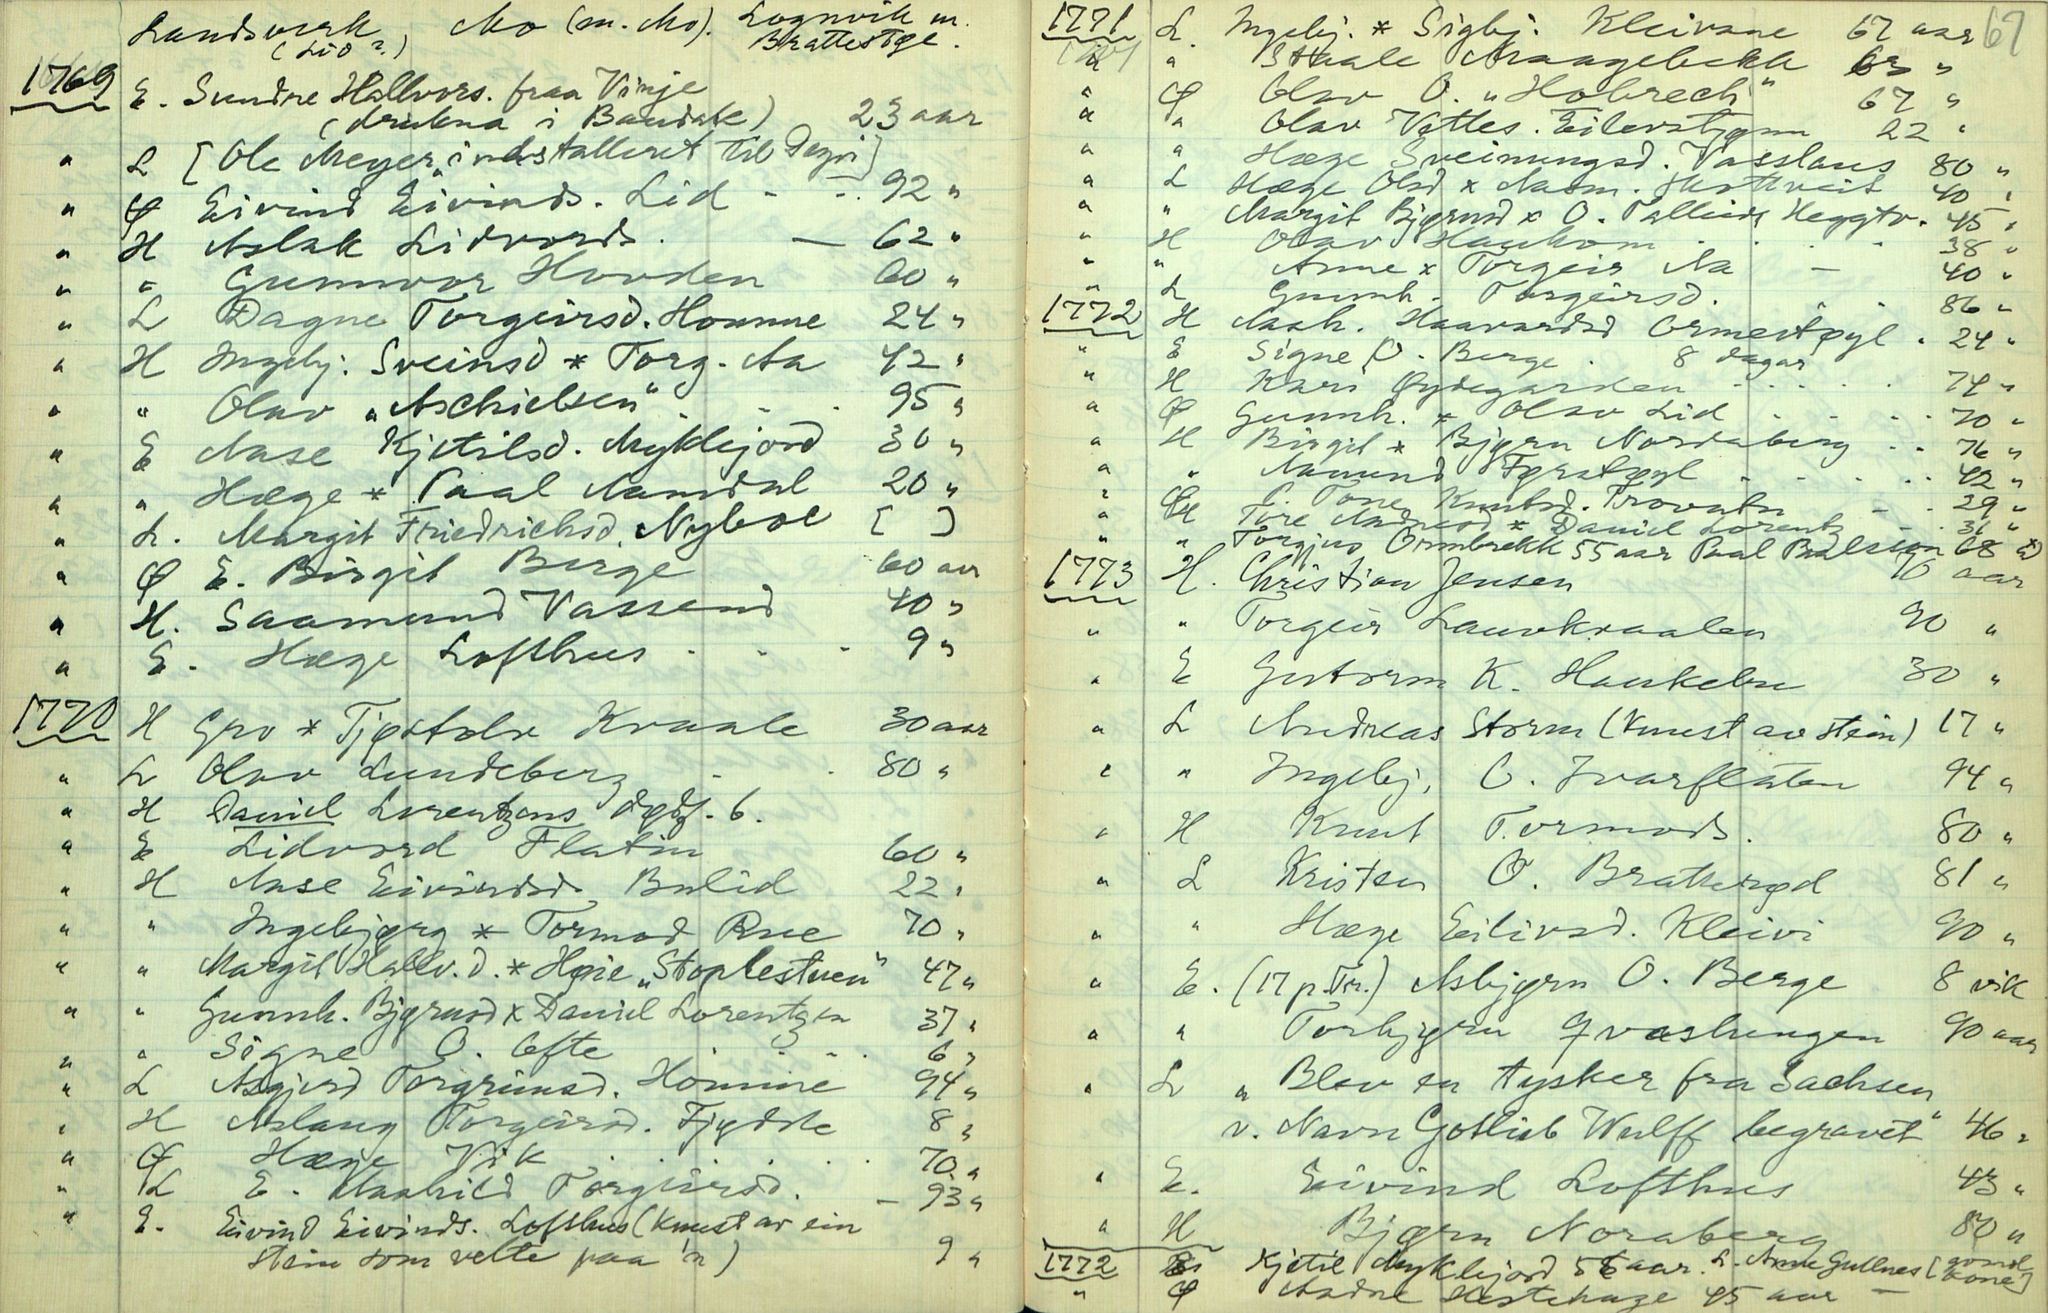 Landsverk Mo (m. Mo). Lognvik m.
(Lio?) Brattestøe.
1769 E. Sundre Hallvors. fraa Vinje
(drukna i Bandak) 23 aar
" L [Ole Meyer "indstalleret til Degn"]
" Ø Eivind Eivinds. Lid - - 92 "
" H Aslak Lidvords. — 62 "
" " Gunnvor Hovden 60 "
" L Dagne Torgeirsd. Homme 24 "
" H Ingebj. Sveinsd * Torg. Aa 42 "
" " Olav "Aschielsen" . . . 95 "
" E Aase Kjetilsd. Myklejord 36 "
" " Hæge * Paal Aamdal 20 "
" L. Margit Friedrichsd. Nyboe [ ]
" Ø E. Birgit Berge 60 aar
" H. Saamund Vassend 40 "
" E. Hæge Lofthus - - - 9 "
1770 H Gro * Tjøstolv Kvaale 30 aar
" L Olav Lundeberg - . 80 "
" H Daniel Lorentzens dødf. b.
" E Lidvord Flatin 60 "
" H Aase Eivindsd Bulid 22 "
" " Ingebjørg * Tormod Rue 70 "
" " Margit Hallv.d. * Høie "Stoplestuen" 47 "
" " Gunnh. Bjørnsd x Daniel Lorentzen 37 "
" " Signe O. Ofte . . . 6 "
" L Asgjerd Torgrimsd. Homme 94 "
" H Aslaug Torgeirsd. Fjydste 8 "
" Ø Hæge Vik . . . . . 70 "
" L E. Maahild Torgeirsd. - 93 "
" E. Eivind Eivinds. Lofthus (knust av ein
stein som velte paa 'n) 9 "
67
1771 L. Ingebj. * Sigbj. Kleivane 67 aar
" " Staale Maagebekk "
" Ø Olav O. "Hobrech" 67 "
" " Olav Vetles. Eilevstjønn 22 "
" " Hæge Sveinungsd. Vasslaus 80 "
" L Hæge Olsd x Aasm. 40 "
" " Margit Bjørnsd x O. Talleivs Heggtv. 45 "
" H Olav Haukom . . . . 38 "
" " Anne x Torgeir Aa — 40 "
" L Gunnh. Torgeirsd. . . 86 "
1772 H Aash. Haavardsd Ormestøyl . 24 "
" E Signe O. Berge . 8 dagar
" H Kari Øydegarden . . . . 74 "
" Ø Gunnh. * Olav Lid . . . . 70 "
" H Birgit * Bjørn Nordaberg . . 76 "
" " Aamund Førstøyl . . . . . 42 "
" Ø L. Tone Knutsd. Trovatn - - 29 "
" H Tore Andresd * Daniel Lorentz - . 31 "
" " Torgjus Ormbrekk 55 aar Paal 68 "
1773 H. Christian Jensen 70 aar
" " Torgeir Lauvkraalen 90 "
" E Guttorm K. Haukelse 30 "
" L Andreas Storm (knust av stein) 17 "
" " Ingebj. O. Ivarflaten 94 "
" H Knut Tormods. 80 "
" L Kristen O. Bratterød 81 "
" " Hæge Eilivsd. Kleivi 90 "
" E. (17 p. Tr.) Asbjørn O. Berge 8 vik
" " Torbjørn Qvashungen 90 aar
" L "Blev en tysker fra Sachsen
v. Navn Gotlieb Wulff begravet" 46 "
" E. Eivind Lofthus 43 "
" H Bjørn Noraberg 80 "
1772 E Kjetil Myklejord 56 aar. L. Anne Gullnes [gomol kone]
" Ø Aadne Hestehage 45 aar —